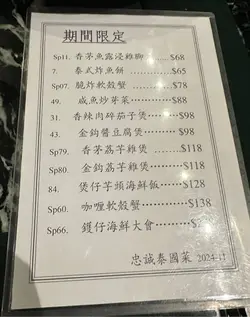 期間限定
Sp11. 香茅魚露浸雞腳 ......$68
7. 泰式炸魚餅 .........$65
Sp07. 脆炸軟殼蟹 ......$78
49. 咸魚炒芽菜............$88
31. 香辣肉碎茄子煲 ......$98
43. 金鈎醬豆腐煲.........$98
Sp79. 香茅荔芋雞煲 ......$118
Sp80. 金鈎荔芋雞煲......$118
84. 煲仔芋頭海鮮飯......$128
Sp60. 咖喱軟殼蟹............$138
Sp66. 鑊仔海鮮大會......
忠誠泰國菜 2024-11